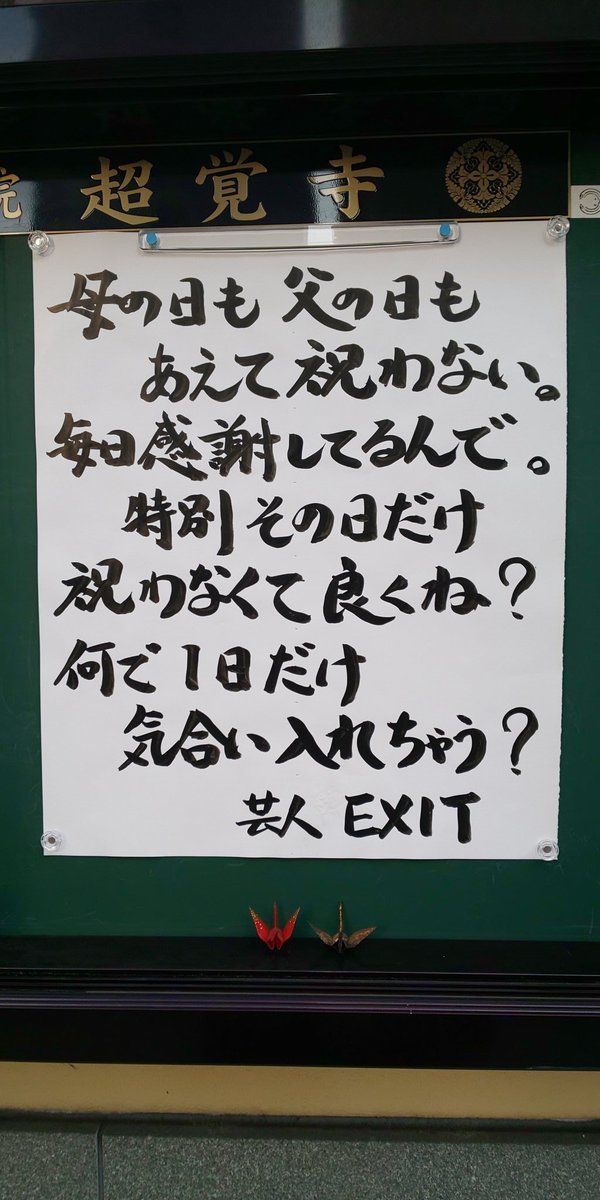 院 超覚寺
母の日も 父の日も
あえて祝わない。
毎日感謝してるんで。
特別その日だけ
祝わなくて良くね？
何で1日だけ
気合い入れちゃう？
芸人 EXIT